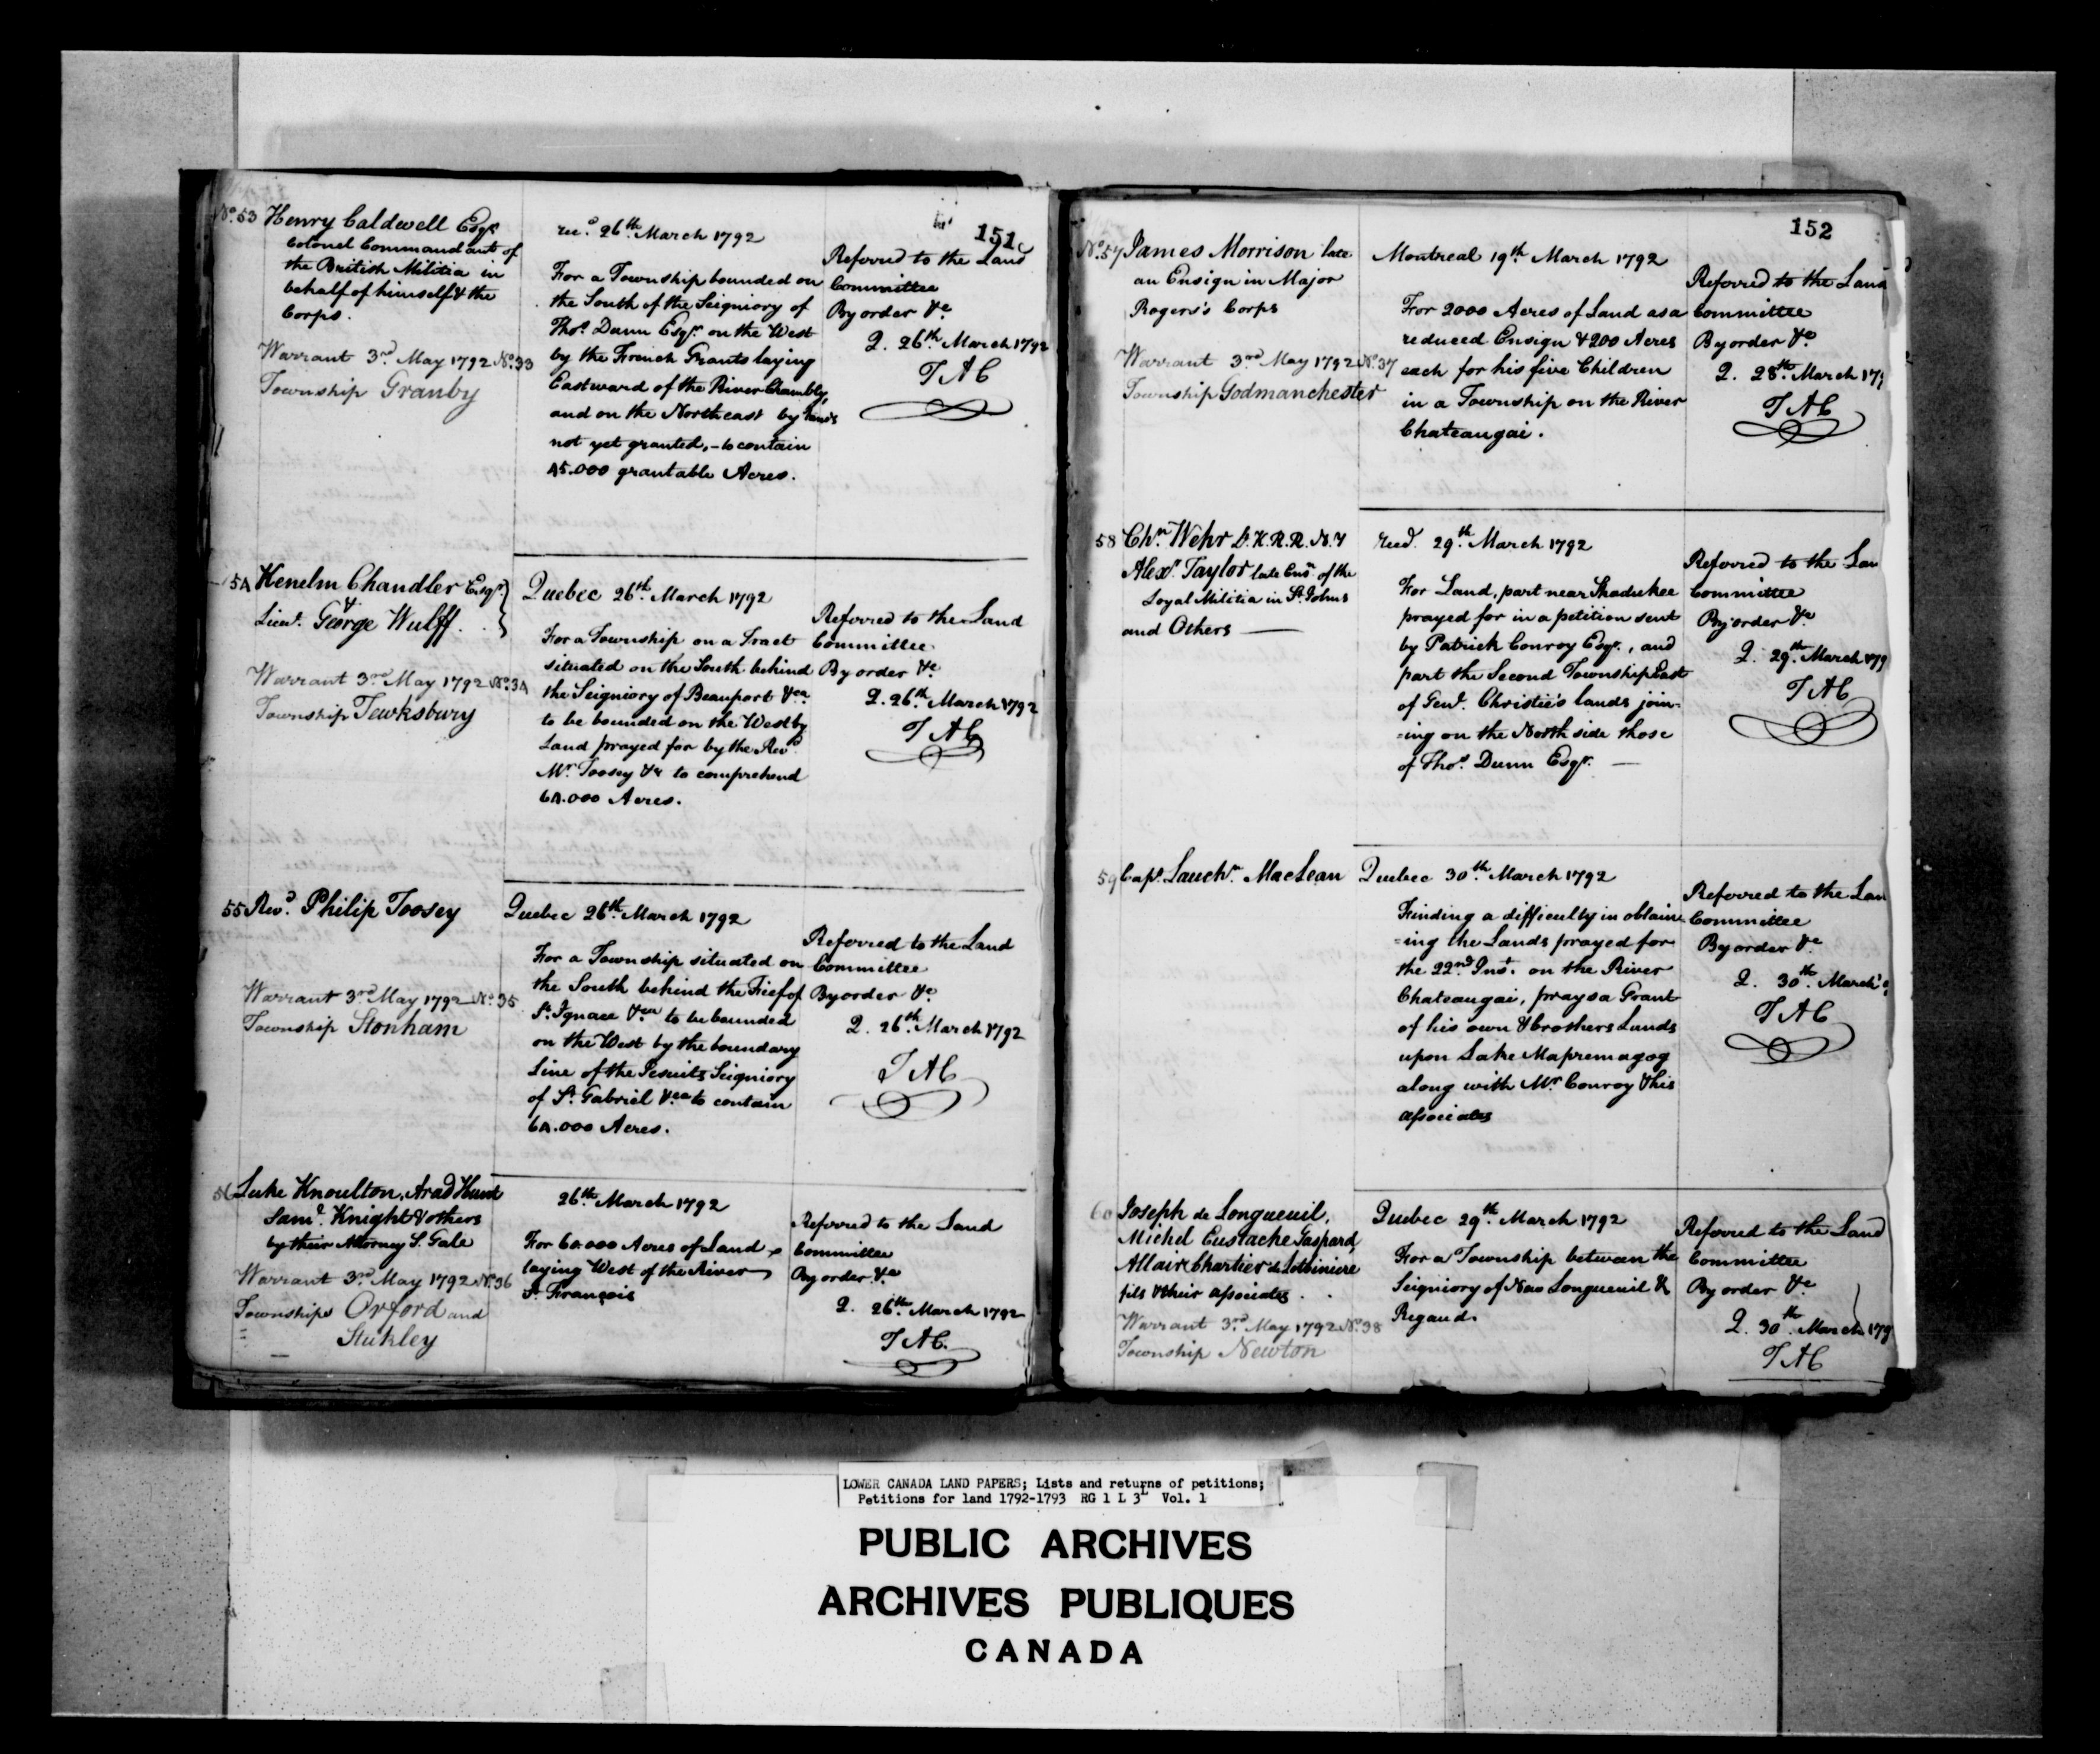 151
No. 53 Henry Caldwell Esqr.
Colonel Commandant of
the British Militia in
behalf of himself & the
Corps.
Warrant 3rd May 1792 No. 33
Township Granby
recd. 26th March 1792
For a Township bounded on
the South of the Seigniory of
Thos. Dunn Esqr. on the West
by the French Grants laying
Eastward of the River Chambly,
and on the North east by Lands
not yet granted, - to contain
45.000 grantable Acres.
Referred to the Land
Committee
By order &c
Q. 26th March 1792
TAC
54 Kenelm Chandler Esqr.
&
Lieut. George Wulff.
Warrant 3rd May 1792 No. 34
Township Tewksbury
Quebec 26th March 1792
For a Township on a Tract
situated on the South behind
the Seigniory of Beauport &ca.
to be bounded on the West by
Land prayed for by the Revd.
Mr. Toosey &c to comprehend
64.000 Acres.
Referred to the Land
Committee
By order &c
Q. 26th March 1792
TAC
55 Revd. Philip Toosey
Warrant 3rd May 1792 No. 35
Township Stonham
Quebec 26th March 1792
For a Township situated on
the South behind the Fief of
St. Ignace &ca to be bounded
on the West by the boundary
Line of the Jesuits Seigniory
of St. Gabriel &ca to contain
64.000 Acres.
Referred to the Land
Committee
By order &c
Q. 26th March 1792
TAC
56 Luke Knoulton, Arad Hunt
Saml. Knight & others
by their Attorney S. Gale
Warrant 3rd May 1792 No. 36
Townships Orford and
Stukley
26th March 1792
For 60.000 Acres of Land
laying West of the River
St. François
Referred to the Land
Committee
By order &c
Q. 26th March 1792
TAC.
152
No. 57 James Morrison late
an Ensign in Major
Rogers's Corps
Warrant 3rd May 1792 No. 37
Township Godmanchester
Montreal 19th March 1792
For 2000 Acres of Land as a
reduced Ensign & 200 Acres
each for his five Children
in a Township on the River
Chateaugai.
Referred to the Land
Committee
By order &c
Q. 28th March 179
TAC
58 Chn. Wehr L.K.R.R.N.Y
Alexr. Taylor late Ensn. of the
Loyal Militia in St. Johns
and Others
recd. 29th March 1792
For Land, part near
prayed for in a petition sent
by Patrick Conroy Esqr., and
part the Second Township East
of Genl. Christie's lands join-
=ing on the North side those
of Thos. Dunn Esqr.
Referred to the Lan
Committee
By order &c
Q. 29th March 179
TAC
59 Capt. Lauchn. MacLean
Quebec 30th March 1792
Finding a difficulty in obtain-
=ing the Lands prayed for
the 22nd Inst. on the River
Chateaugai, prays a Grant
of his own & brothers Lands
upon Lake Mapremagog
along with Mr. Conroy & his
associates
Referred to the Lan
Committee
By order &c
Q. 30th March
TAC
60 Joseph de Longueuil,
Michel Eustache Gaspard,
Allair Chartier de Lotbiniere
fils & their associates
Warrant 3rd May 1792 No. 38
Township Newton
Quebec 29th March 1792
For a Township between the
Seigniory of New Longueuil &
Regaud.
Referred to the Land
Committee
By order &c
Q. 30th March 179
TAC
LOWER CANADA LAND PAPERS; Lists and returns of petitions;
Petitions for land 1792-1793 RG 1 L 3L Vol. 1
PUBLIC ARCHIVES
ARCHIVES PUBLIQUES
CANADA